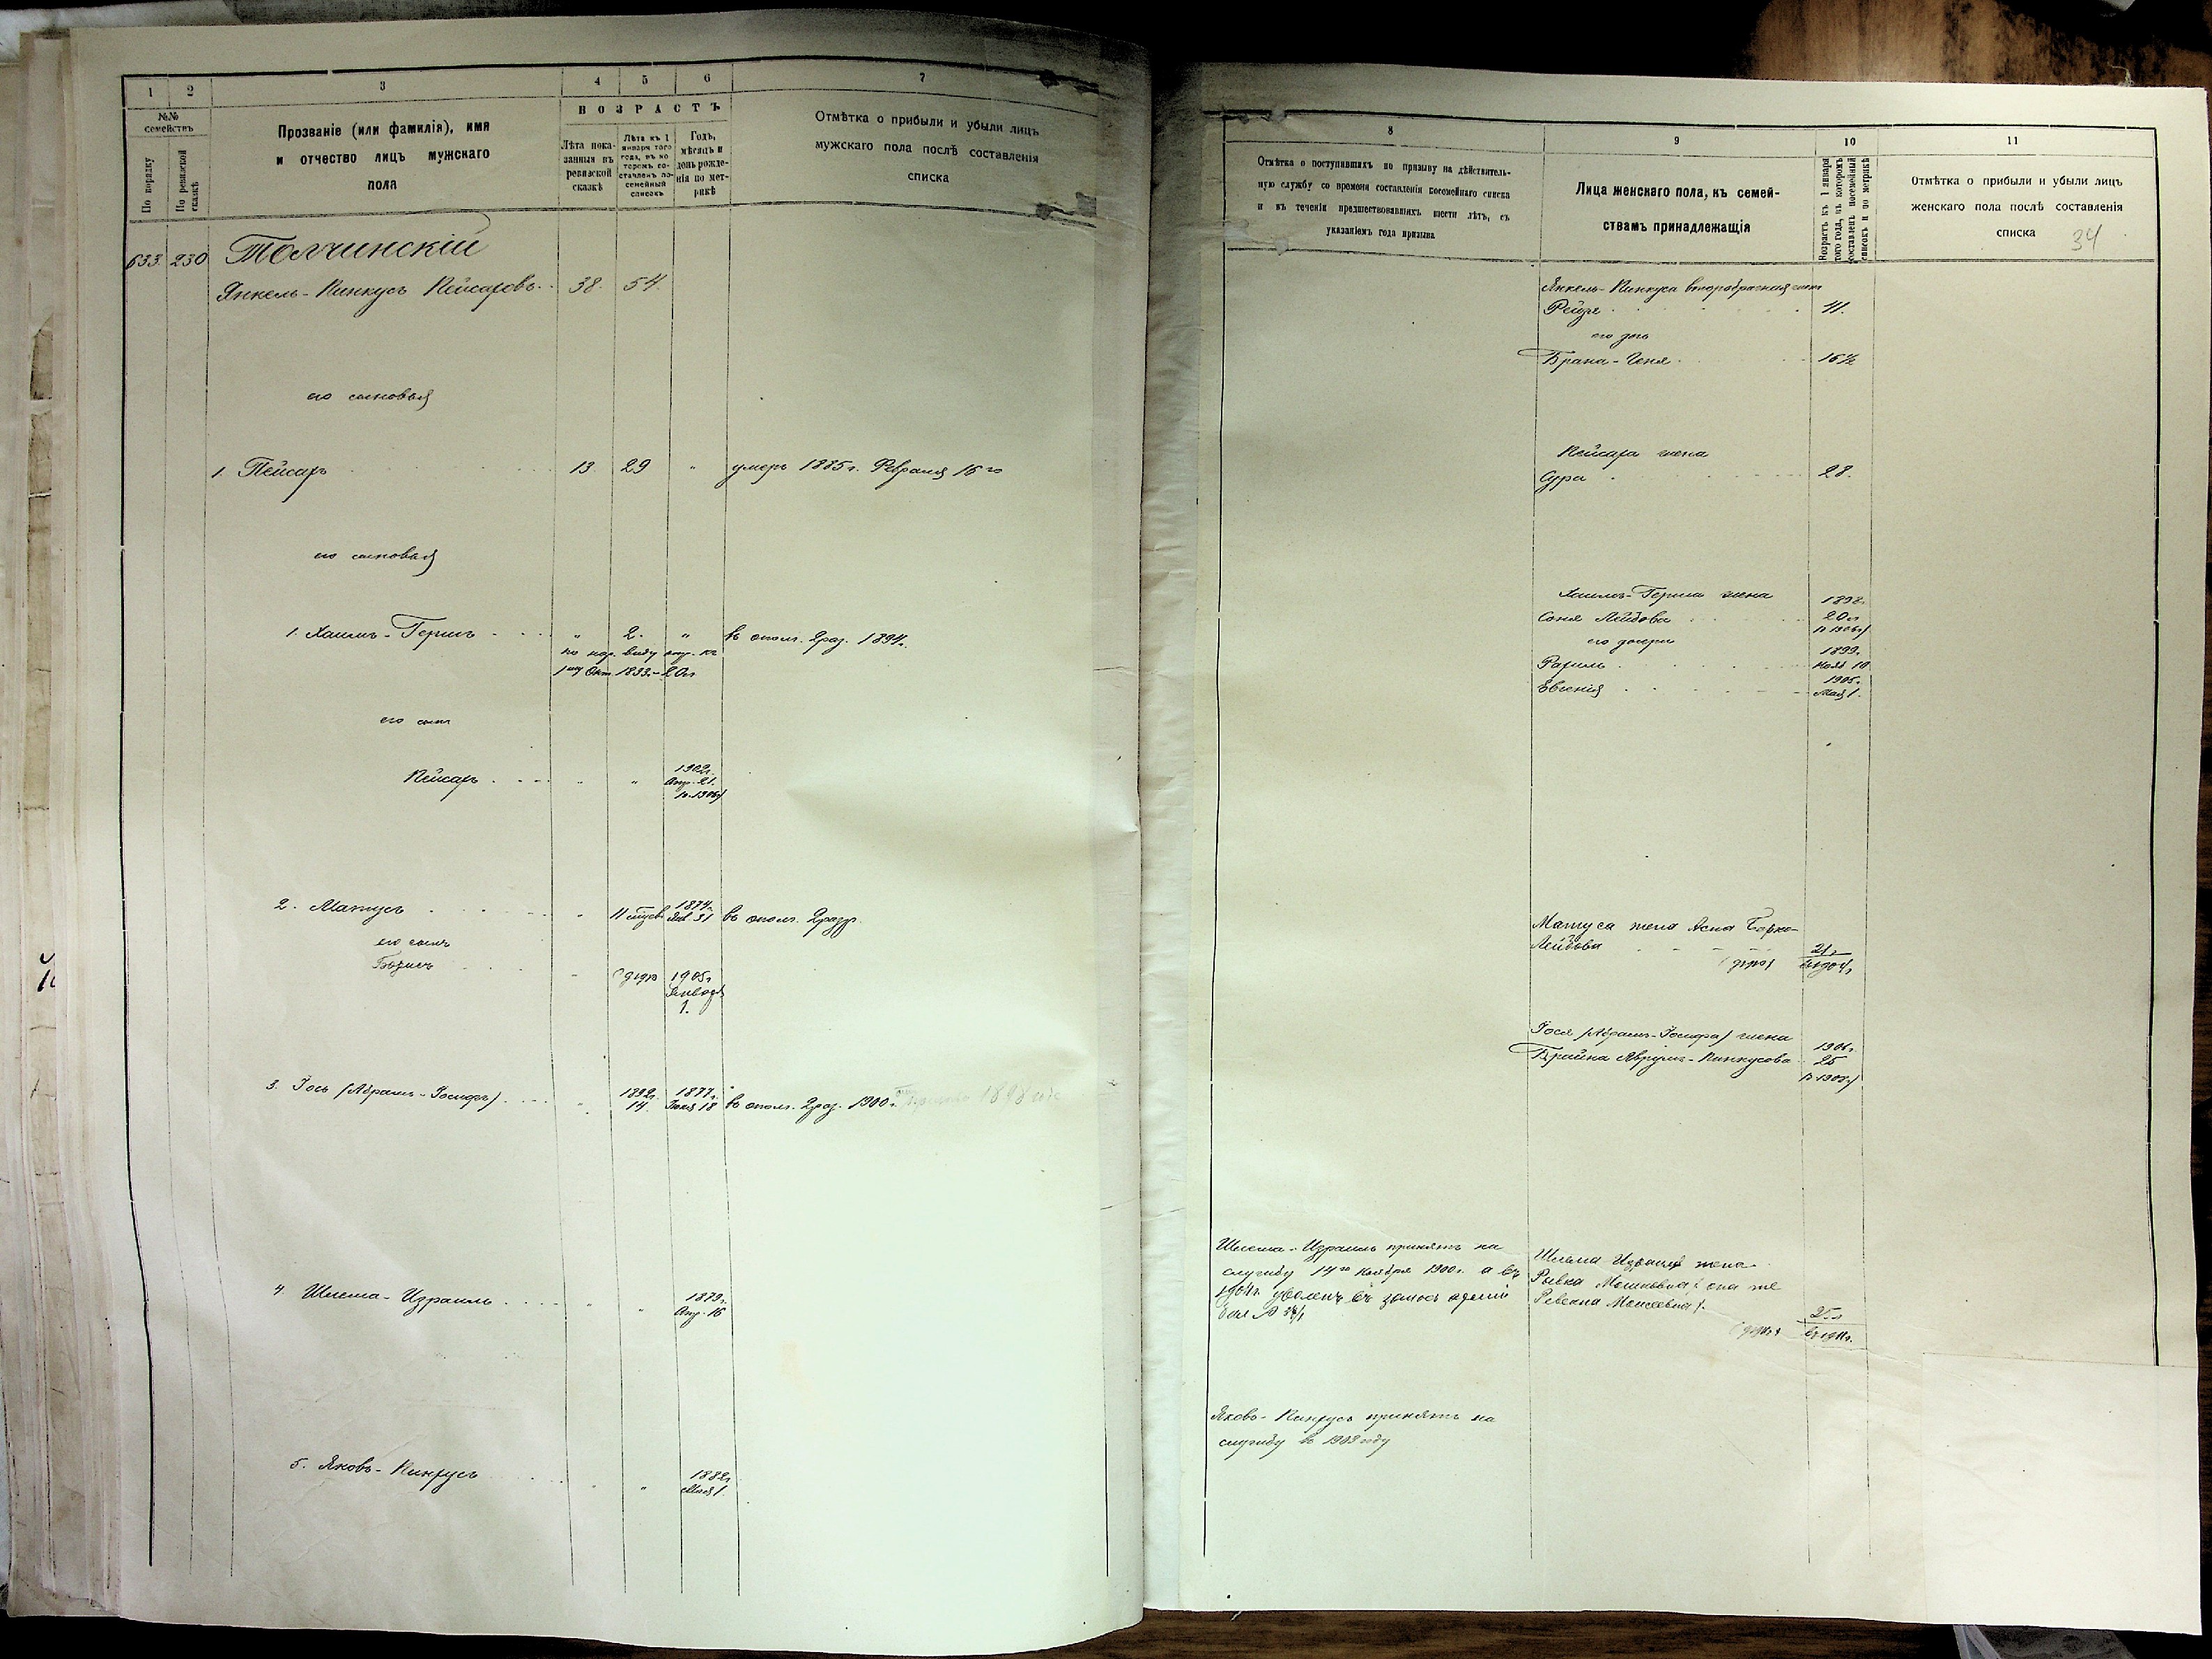 1
2
3
4
5
6
7
№№ семействъ
По порядку
По ревизской сказкѣ
Прозваніе (или фамилія), имя
и отчество лицъ мужскаго
пола
ВОЗРАСТЪ
Лѣта пока-
занныя въ
ревизской
сказкѣ
Лѣта къ 1
января того
года, въ ко-
торомъ со-
ставленъ по-
семейный
списокъ
Годъ,
мѣсяцъ и
день рожде-
нія по мет-
рикѣ
Отмѣтка о прибыли и убыли лицъ
мужскаго пола послѣ составленія
списка
633. 230 Толчинскій
Янкель-Пинкусъ Пейсаровъ 38. 54.
его сыновья
1. Пейсаръ 13. 29 " умеръ 1885 г. Февраля 16го
его сыновья
1. Хаимъ-Гершъ " 2. " въ опол. 2 раз. 1894 г.
по нар. виду опр. къ
1му Окт. 1893 - 20 л
его сынъ
Пейсаръ " " 1902 г.
Апр. 21.
2. Матусъ " 11 1874 г.
31 въ опол. 2 разр.
его сынъ
Борисъ " 1905 г
Января
1.
3. Іось (Абрамъ-Іосифъ) " 1892 г. 1877 г.
14. Іюня 18 въ опол. 2 раз. 1900 г. 1898 года
4 Шлема-Израиль " " 1879 г.
Апр. 16
5. Яковъ-Пинхусъ " " 1882 г
Мая 1.
8
9
10
11
Отмѣтка о поступившихъ по призыву на дѣйствитель-
ную службу со времени составленія посемейнаго списка
и въ теченіи предшествовавшихъ шести лѣтъ, съ
указаніемъ года призыва
Лица женскаго пола, къ семей-
ствамъ принадлежащія
Возрастъ къ 1 января
того года, въ которомъ
составленъ посемейный
списокъ и по метрикѣ
Отмѣтка о прибыли и убыли лицъ
женскаго пола послѣ составленія
списка
34
Янкель-Пинкуса второбрачная жена
Рейзя 41.
его дочь
Брана-Геня 16½
Пейсара жена
Сура 28.
Хаимъ-Герша жена 1898 г.
Соня Лейбова 20 л
его дочери
Рахиль 1899 г.
Нояб 10
Евгенія 1905 г.
Мая 1.
Матуса жена Асна Берко-
Лейбова 21 л
въ 1904 г.
Іося (Абрамъ-Іосифа) жена
Брайна Аврумъ-Пинкусова 1906 г.
25
Шлема-Израиль принятъ на
службу 14го Ноября 1900 г. а въ
1904 г. уволенъ въ запасъ арміи
Шлема Израиля жена
Рывка Мошковна, она же
Ревекка Моисеевна
25 л
Яковъ-Пинхусъ принятъ на
службу въ 1903 году